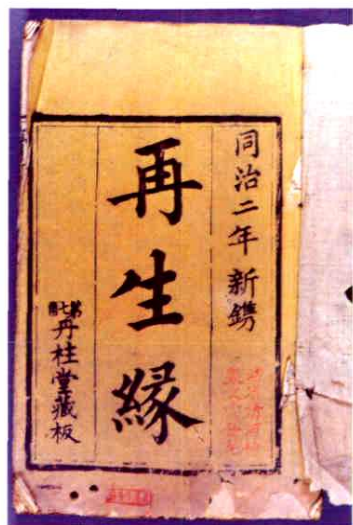 同治二年新鐫
再生緣
第七
丹桂堂藏板